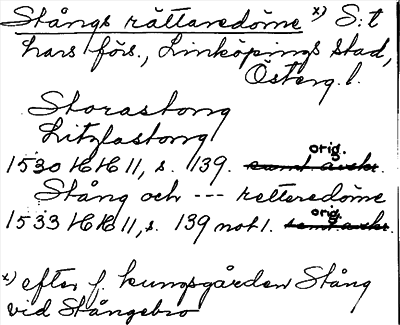 Stångs rättaredöme x) S:t
Lars förs., Linköpings stad,
Österg. l.
Storastong
Litzlastong
1530 HH 11, s. 139. orig.
Stång och --- retteredöme
1533 HH 11, s. 139 not 1. orig.
x) efter f. kungsgården Stång
vid Stångebro